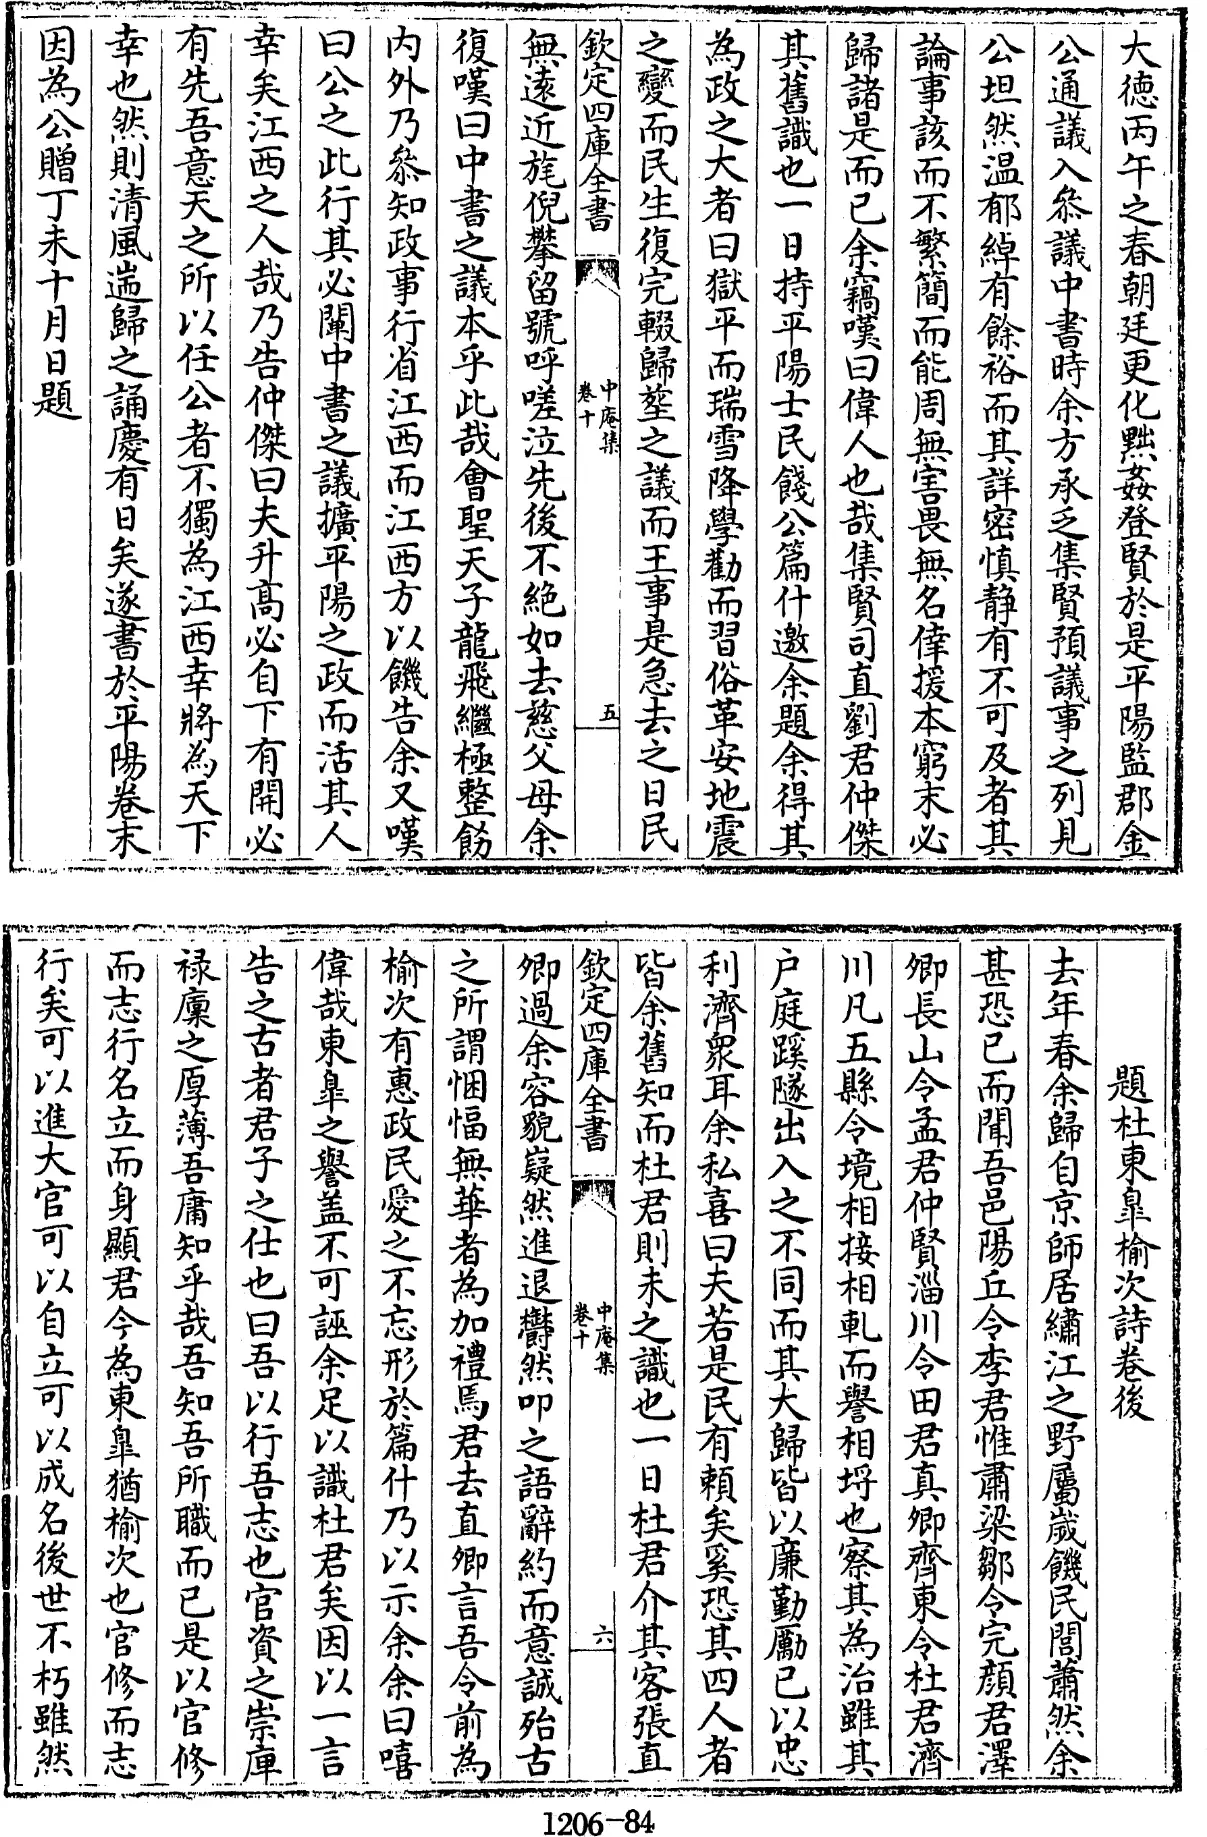 大徳丙午之春朝廷更化黜姦登賢於是平陽監郡金
公通議入叅議中書時余方承乏集賢預議事之列見
公坦然温郁綽有餘裕而其詳密慎静有不可及者其
論事該而不繁簡而能周無害畏無名倖援本窮末必
歸諸是而已余竊嘆曰偉人也哉集賢司直劉君仲傑
其舊識也一日持平陽士民餞公篇什邀余題余得其
為政之大者曰獄平而瑞雪降學勸而習俗革安地震
之變而民生復完輟歸塟之議而王事是急去之日民
欽定四庫全書
中庵集
卷十
五
無遠近旄倪攀留號呼嗟泣先後不絶如去慈父母余
復嘆曰中書之議本乎此哉會聖天子龍飛繼極整飭
内外乃叅知政事行省江西而江西方以饑告余又嘆
曰公之此行其必闡中書之議擴平陽之政而活其人
幸矣江西之人哉乃告仲傑曰夫升髙必自下有開必
有先吾意天之所以任公者不獨為江西幸將為天下
幸也然則清風遄歸之誦慶有日矣遂書於平陽卷末
因為公贈丁未十月日題
題杜東臯榆次詩卷後
去年春余歸自京師居繡江之野屬歲饑民閭蕭然余
甚恐已而聞吾邑陽丘令李君惟肅梁鄒令完顔君澤
卿長山令孟君仲賢淄川令田君真卿齊東令杜君濟
川凡五縣令境相接相軋而譽相埒也察其為治雖其
户庭蹊隧出入之不同而其大歸皆以廉勤勵已以忠
利濟衆耳余私喜曰夫若是民有頼矣奚恐其四人者
皆余舊知而杜君則未之識也一日杜君介其客張直
欽定四庫全書
中庵集
卷十
六
卿過余容貌嶷然進退欝然叩之語辭約而意誠殆古
之所謂悃愊無華者為加禮焉君去直卿言吾令前為
榆次有惠政民愛之不忘形於篇什乃以示余余曰嘻
偉哉東臯之譽盖不可誣余足以識杜君矣因以一言
告之古者君子之仕也曰吾以行吾志也官資之崇庳
禄廩之厚薄吾庸知乎哉吾知吾所職而已是以官修
而志行名立而身顯君今為東臯猶榆次也官修而志
行矣可以進大官可以自立可以成名後世不朽雖然
1206-84